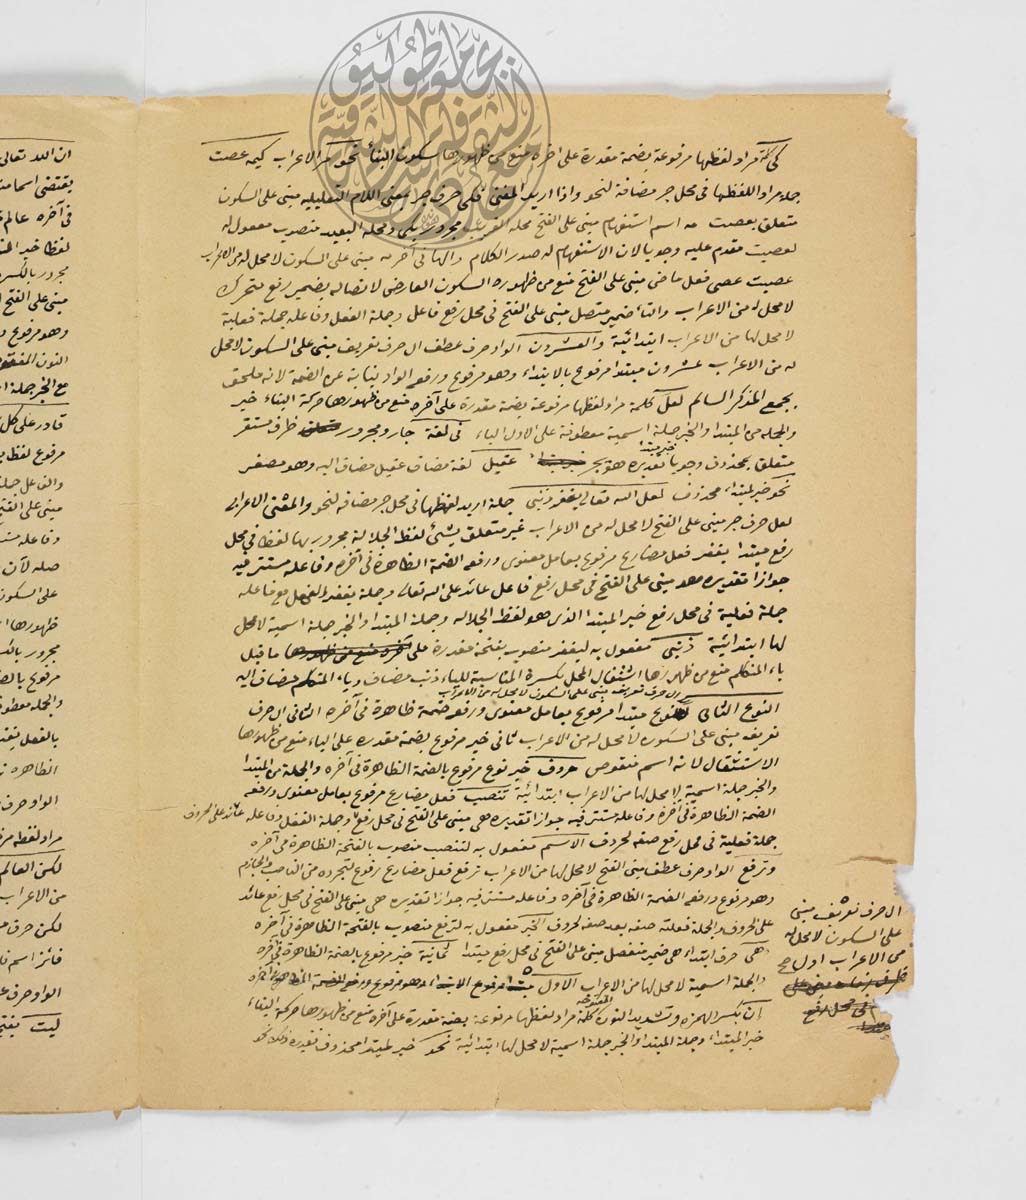 كى كلمة مراد لفظها مرفوعة بضمة مقدرة على آخره منع من ظهورها سكون البناء نحو مر الاعراب كيمه عصت
جملة مراد اللفظها فى محل جر مضافة لنحو واذا اريد المعنى فكى حرف جر بمعنى اللام التعليليه مبنى على السكون
متعلق بعصيت مه اسم استفهام مبنى على الفتح محله القريب مجرور بكى ومحله البعيد منصوب معفول له
لعصيت مقدم عليه وجوبا لان الاستفهام له صدر الكلام والها فى آخر مه مبنى على السكون لا محل له من الاعراب
عصيت عصى فعل ماضى مبنى على الفتح منع من ظهوره السكون العارضى لاتصاله بضمير رفع متحرك
لا محل له من الاعراب والتاء ضمير متصل مبنى على الفتح فى محل رفع فاعل وجملة الفعل وفاعله جملة فعلية
لا محل لها من الاعراب ابتدائية والعشرون الواو حرف عطف ال حرف تعريف مبنى على السكون لا محل
له من الاعراب عشرون مبتدا مرفوع بالابتداء وهو مرفوع ورفعه الواو نيابة عن الضمة لانه ملحق
بجمع المذكر السالم لعل كلمة مراد لفظها مرفوعة بضمة مقدرة على آخره منع من ظهورها حركة البناء خبر
والجملة من المبتدا والخبر جملة اسمية معطوفة على الاول الباء فى لغة جار ومجرور ظرف مستقر
متعلق بمحذوف وجوبا تقديره هو بجر خبر مبتدا عقيل لغة مضاف عقيل مضاف اليه وهو مصغر
نحو خبر لمبتداء محذوف لعل الله تعالى يغفر ذنبى جملة اريد لفظها فى محل جر مضافه لنحو والمعنى الاعرابى
لعل حرف جر مبنى على الفتح لا محل له من الاعراب غير متعلق بشئ لفظ الجلالة مجرور بها لفظا فى محل
رفع مبتدا يغفر فعل مضارع مرفوع بعامل معنوى ورفعه الضمة الظاهرة فى آخره وفاعله مستتر فيه
جوازا تقديره هو مبنى على الفتح فى محل رفع فاعل عائد على الله تعالى وجملة يغفر الفعل مع فاعله
جملة فعلية فى محل رفع خبر المبتدا الذى هو لفظ الجلاله وجملة المبتدا والخبر جملة اسمية لا محل
لها ابتدائية ذنبى مفعول به ليغفر منصوب بفتحة مقدرة على ما قبل
ياء المتكلم منع من ظهورها اشتغال المحل بكسرة المناسبة للياء ذنب مضاف وياء المتكلم مضاف اليه
ال حرف تعريف مبنى على السكون لا محل له من الاعراب
النوع الثانى نوع مبتدا مرفوع بعامل معنوى ورفعه ضمة ظاهرة فى آخره الثانى ال حرف
تعريف مبنى على السكون لا محل له من الاعراب ثانى خبر مرفوع بضمة مقدره على الياء منع من ظهورها
الاستثقال لانه اسم منقوص حروف خبر نوع مرفوع بالضمة الظاهرة فى آخره والجملة من المبتدا
والخبر جملة اسمية لا محل لها من الاعراب ابتدائية تنصب فعل مضارع مرفوع بعامل معنوى ورفعه
الضمة الظاهرة فى آخره وفاعله مستتر فيه جوازا تقديره هى مبنى على الفتح فى محل رفع وجملة الفعل وفاعله عائد على الحروف
جملة فعلية فى محل رفع صفه لحروف الاسم مفعول به لتنصب منصوب بالفتحة الظاهرة فى آخره
وترفع الواو حرف عطف مبنى الفتح لا محل لها من الاعراب ترفع فعل مضارع مرفوع لتجرده من الناصب والجازم
وهو مرفوع ورفعه الضمة الظاهرة فى آخره وفاعله مستتر فيه جوازا تقديره هى مبنى على الفتح فى محل رفع عائد
على الحروف والجملة فعلية صفه بعد صفه لحروف الخبر مفعول به لترفع منصوب بالفتحة الظاهرة فى آخره
هى حرف ابتداء هى ضمير منفصل مبنى على الفتح فى محل رفع مبتدا ثمانية خبر مرفوع بالضمة الظاهرة فى آخره
والجملة اسمية لا محل لها من الاعراب الاول مبتدا مرفوع الابتداء وهو مرفوع ورفعه الضمة الظاهرة آخره
ان بكسر الهمزه وتشديد النون المفتوحه كلمة مراد لفظها مرفوعة بضمة مقدرة على آخره منع من ظهورها حركة البناء
خبر المبتداء وجملة المبتدا والخبر جملة اسمية لا محل لها ابتدائية نحو خبر لمبتدا محذوف تقديره ذلك نحو
ال حرف تعريف مبنى
على السكون لا محل له
من الاعراب اول صح
ان الله تعالى
يقتضى اسما
فى آخره عالم
لفظا خبر
مجرور بالكسرة
مبنى على الفتح
وهو مرفوع
النون
مع الخبر جملة
قادر على كل
مرفوع لفظا
والفاعل جملة
مبنى على الفتح
وفاعله
صله لأن
على السكون
ظهورها
مجرور
مرفوع
والجملة معطوفة
بالفعل
الظاهره
الواو حرف
مراد لفظه
لكن العالم
من الاعراب
لكن حرف
فائز اسم
الواو حرف
ليت